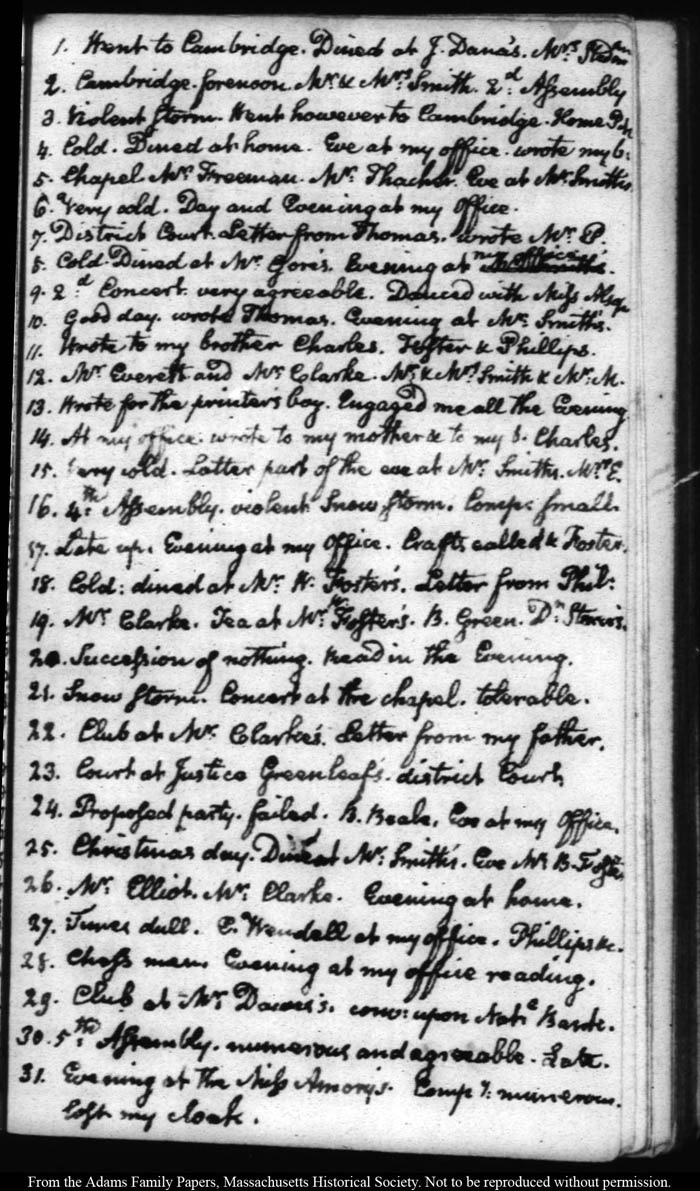 1. Went to Cambridge. Dined at J. Dana's. Mrs.
2. Cambridge. forenoon. Mr. & Mrs. Smith. 2d. Assembly
3. Violent storm. Went however to Cambridge. Home
4. Cold. Dined at home. Eve at my office. wrote my b:
5. Chapel Mr. Freeman. Mr. Thacher. Eve at Mr. Smith's
6. Very cold. Day and Evening at my Office.
7. District Court. Letter from Thomas. wrote Mr. P.
8. Cold. Dined at Mr. Gore's. Evening at my office
9. 2d. Concert. very agreeable. Danced with Miss
10. Good day. wrote Thomas. Evening at Mr. Smith's.
11. Wrote to my brother Charles. Foster & Phillips.
12. Mr. Everett and Mr. Clarke. Mr. & Mrs. Smith & Mr. M.
13. Wrote for the printer's boy. Engaged me all the Evening
14. At my office. wrote to my mother & to my b. Charles.
15. Very cold. Latter part of the eve at Mr. Smith's. Mr. E.
16. 4th. Assembly. violent Snow storm. Comp: small.
17. Late up. Evening at my Office. Crafts called & Foster.
18. Cold: dined at Mr. W. Foster's. Letter from Phil:
19. Mr. Clarke. Tea at Mr. Foster's. B. Green. Dn. Storer's.
20. Succession of nothing. Read in the Evening.
21. Snow storm. Concert at the chapel. tolerable.
22. Club at Mr. Clarke's. Letter from my father.
23. Court at Justice Greenleaf's. district Court.
24. Proposed party. failed. B. Beale. Eve at my Office.
25. Christmas day. Dined at Mr. Smith's. Eve Mr. B. Foster
26. Mr. Elliot. Mr. Clarke. Evening at home.
27. Times dull. E. Wendell at my office. Phillips &c.
28. Chess men. Evening at my office reading.
29. Club at Mr. Dawes's. conv: upon
30. 5th. Assembly. numerous and agreeable. Late.
31. Evening at the Miss Amory's. Compy: numerous.
Lost my cloak.
From the Adams Family Papers, Massachusetts Historical Society. Not to be reproduced without permission.